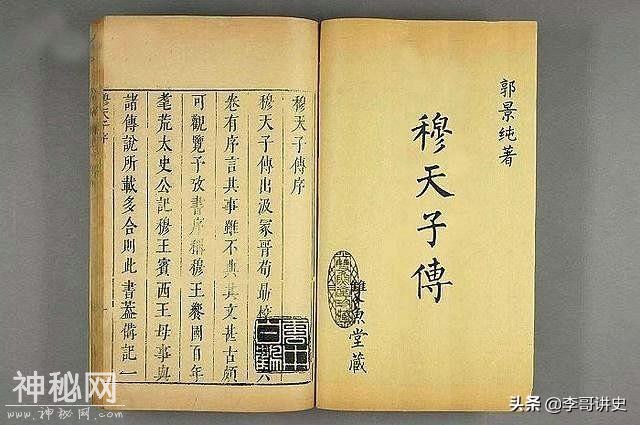 郭景纯著
穆天子傳
雙魚堂藏
穆天子傳序
穆天子傳出汲冢晉荀勗校六
卷有序言其事雖不典其文甚古頗
可觀覽予攷書序稱穆王饗國百年
耄荒太史公記穆王賓西王母事與
諸傳說所載多合則此書葢備記一
穆天子序
神秘网
www.神秘网.com
头条 @李哥讲史